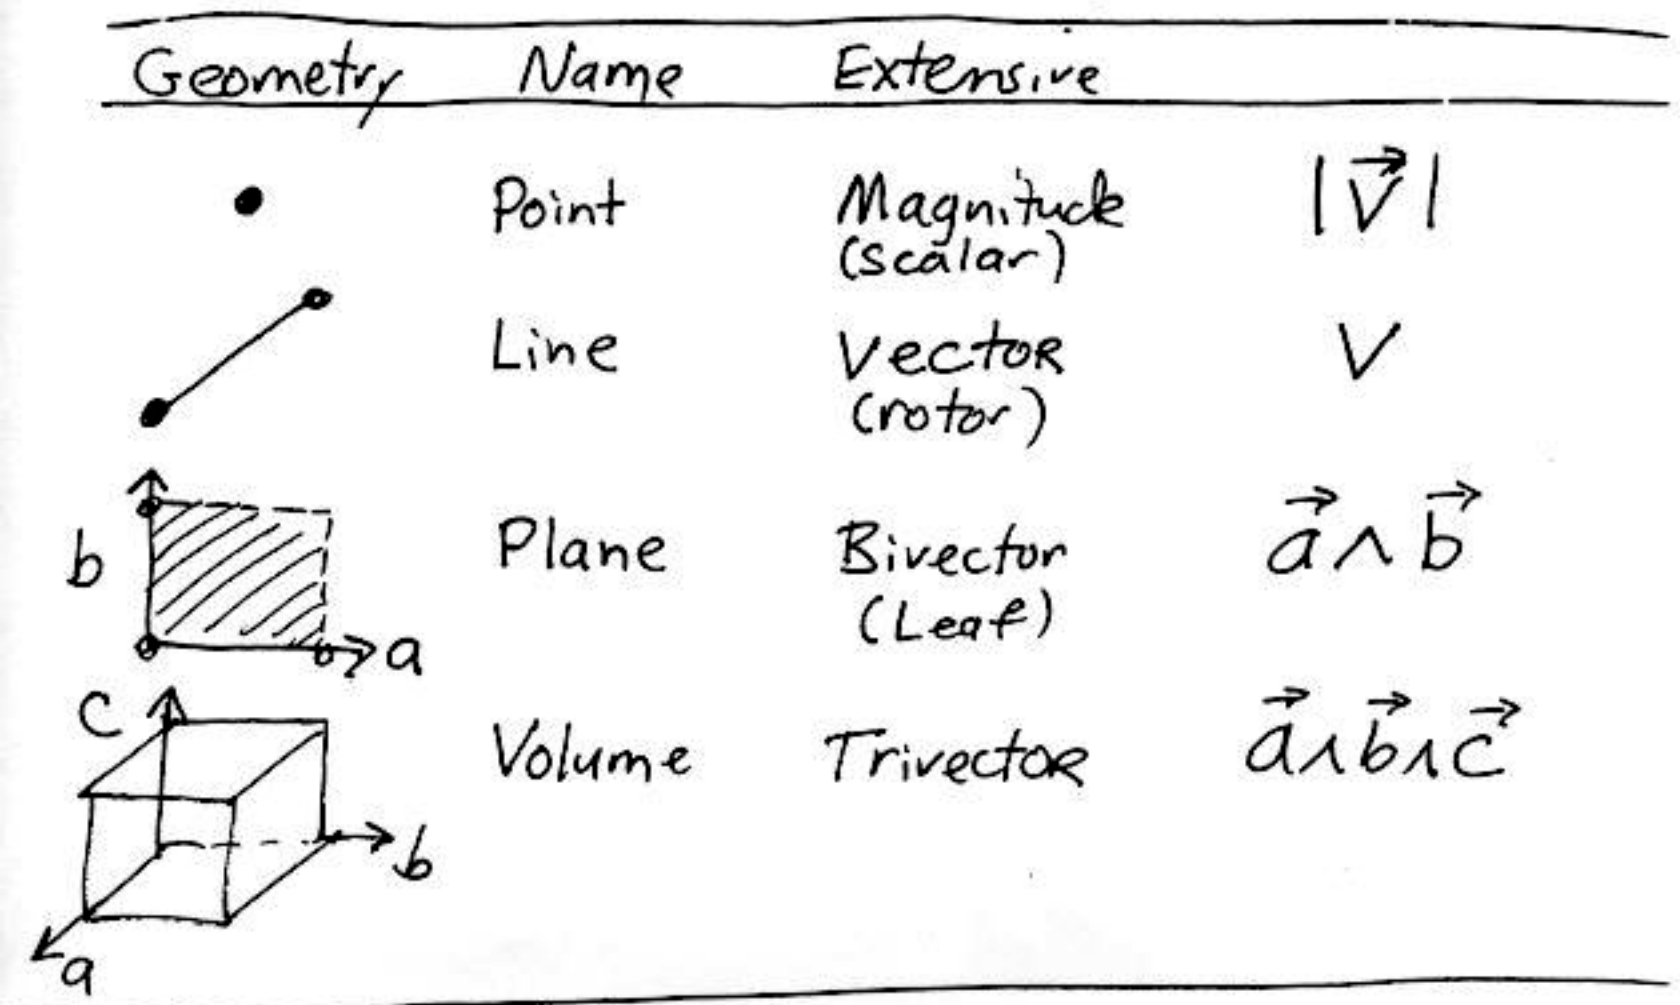 Geometry Name Extensive
Point Magnitude |v⃗|
(scalar)
Line Vector V
(rotor)
b Plane Bivector a⃗ ∧ b⃗
(Leaf)
a
c Volume Trivector a⃗ ∧ b⃗ ∧ c⃗
b
a